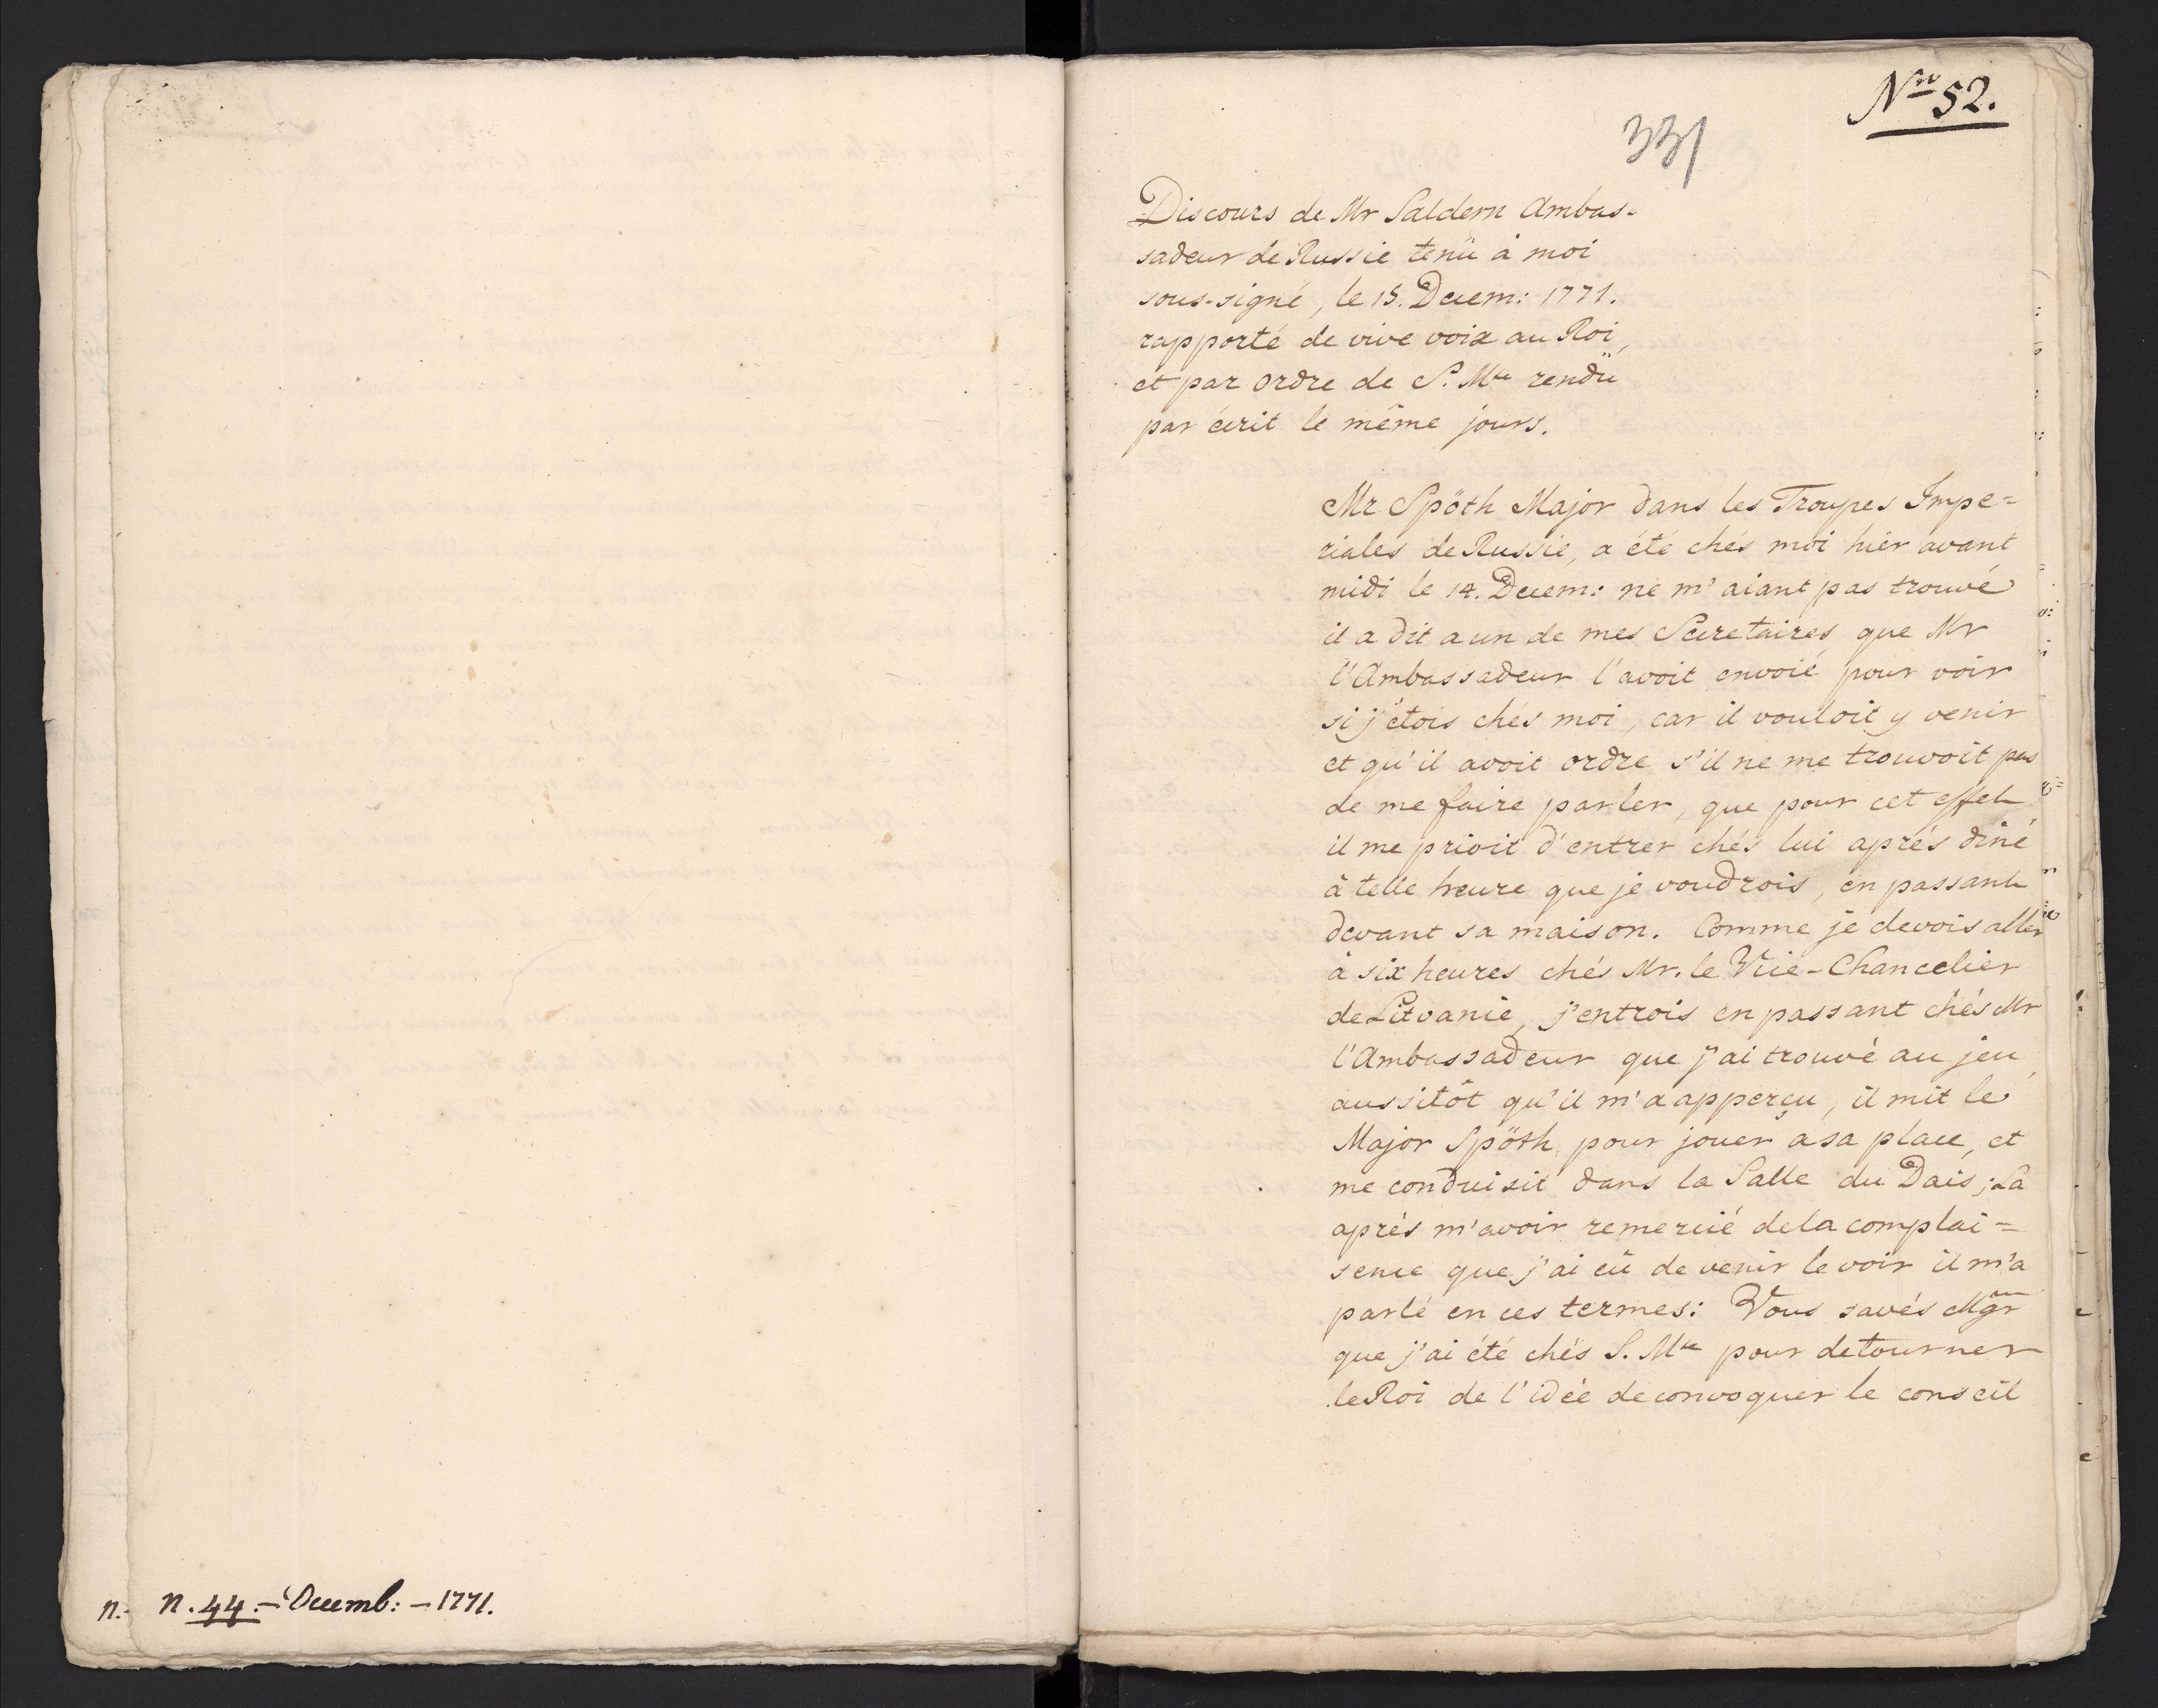 n. n. 44. – Decemb: – 1771.
Nro 52.
331
Discours de Mr Saldern Ambas-
sadeur de Russie tenü à moi
sous-signé, le 15. Decem: 1771.
rapporté de vive voix au Roi,
et par ordre de S. Mte rendü
par écrit le même jours.
Mr Spöth Major dans les Troupes Impe=
riales de Russie, a été chés moi hiér avant
midi le 14. Decem: ne m'aiant pas trouvé
il a dit a un de mes Secretaires, que Mr
l'Ambassadeur l'avoit envoié pour voir
si j'étois chés moi, car il vouloit y venir
et qu'il avoit ordre s'il ne me trouvoit pas
de me faire parler, que pour cet effet
il me prioit d'entrer chés lui aprés diné
à telle heure que je voudrois, en passant
devant sa maison. Comme je devois aller
à six heures chés Mr. le Vice-Chancelier
de Litvanie, j'entrois en passant chés Mr
l'Ambassadeur que j'ai trouvé au jeu,
aussitôt qu'il m'a apperçu, il mit le
Major Spöth pour jouer a sa place, et
me conduisit dans la Salle du Dais; La
aprés m'avoir remercié de la complai=
sence que j'ai eü de venir le voir il m'a
parlé en ces termes: Vous savés Mgr
que j'ai été chés S. Mte pour detourner
le Roi de l'idée de convoquer le conseil